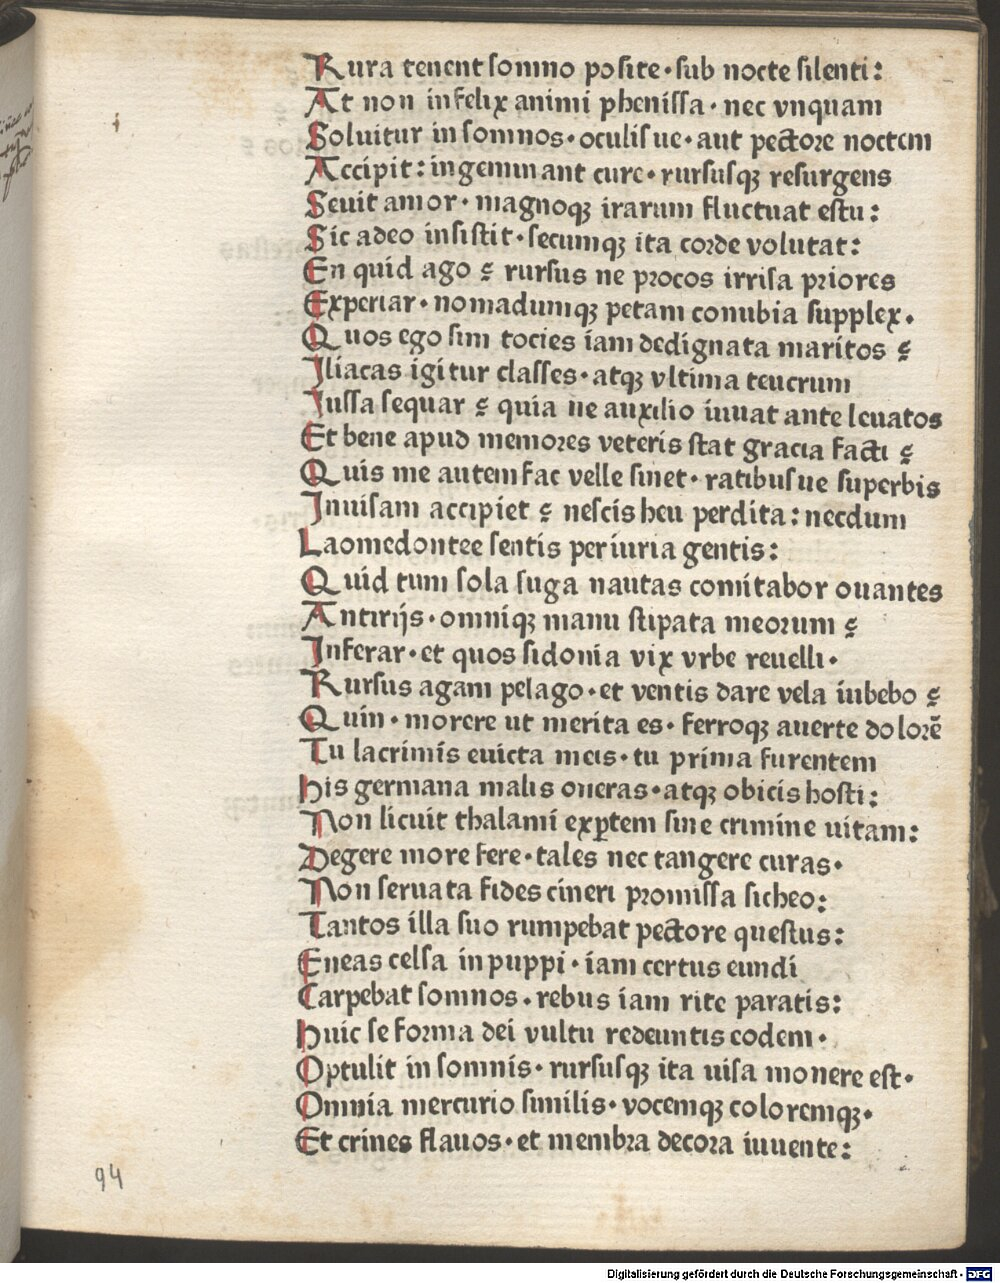 Rura tenent somno posite · sub nocte silenti :
At non infelix animi phenissa · nec vnquam
Soluitur in somnos · oculisue · aut pectore noctem
Accipit : ingeminant cure · rursusqꝫ resurgens
Seuit amor · magnoqꝫ irarum fluctuat estu :
Sic adeo insistit · secumqꝫ ita corde volutat :
En quid ago ? rursus ne procos irrisa priores
Experiar · nomadumqꝫ petam conubia supplex .
Quos ego sim tocies iam dedignata maritos ?
Iliacas igitur classes · atqꝫ vltima teucrum
Iussa sequar ? quia ne auxilio iuuat ante leuatos
Et bene apud memores veteris stat gracia facti ?
Quis me autem fac velle sinet · ratibusue superbis
Inuisam accipiet ? nescis heu perdita : necdum
Laomedontee sentis periuria gentis :
Quid tum sola fuga nautas comitabor ouantes
An tirijs · omniqꝫ manu stipata meorum ?
Inferar · et quos sidonia vix vrbe reuelli ·
Rursus agam pelago · et ventis dare vela iubebo ?
Quin · morere ut merita es · ferroqꝫ auerte dolorē
Tu lacrimis euicta meis · tu prima furentem
His germana malis oneras · atqꝫ obicis hosti :
Non licuit thalami exꝑtem sine crimine uitam :
Degere more fere · tales nec tangere curas ·
Non seruata fides cineri promissa sicheo :
Tantos illa suo rumpebat pectore questus :
Eneas celsa in puppi · iam certus eundi
Carpebat somnos · rebus iam rite paratis :
Huic se forma dei vultu redeuntis eodem ·
Optulit in somnis · rursusqꝫ ita uisa monere est ·
Omnia mercurio similis · vocemqꝫ coloremqꝫ ·
Et crines flauos · et membra decora iuuente :
94
Digitalisierung gefördert durch die Deutsche Forschungsgemeinschaft - DFG